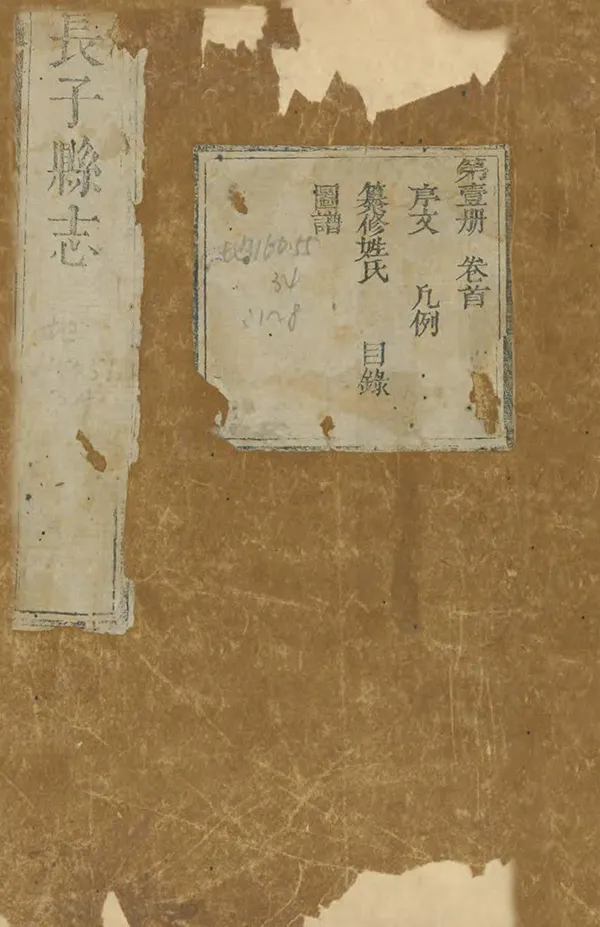 長子縣志
第壹册 卷首
序文 凡例
纂修姓氏 目錄
圖譜
160.55
34
21~8